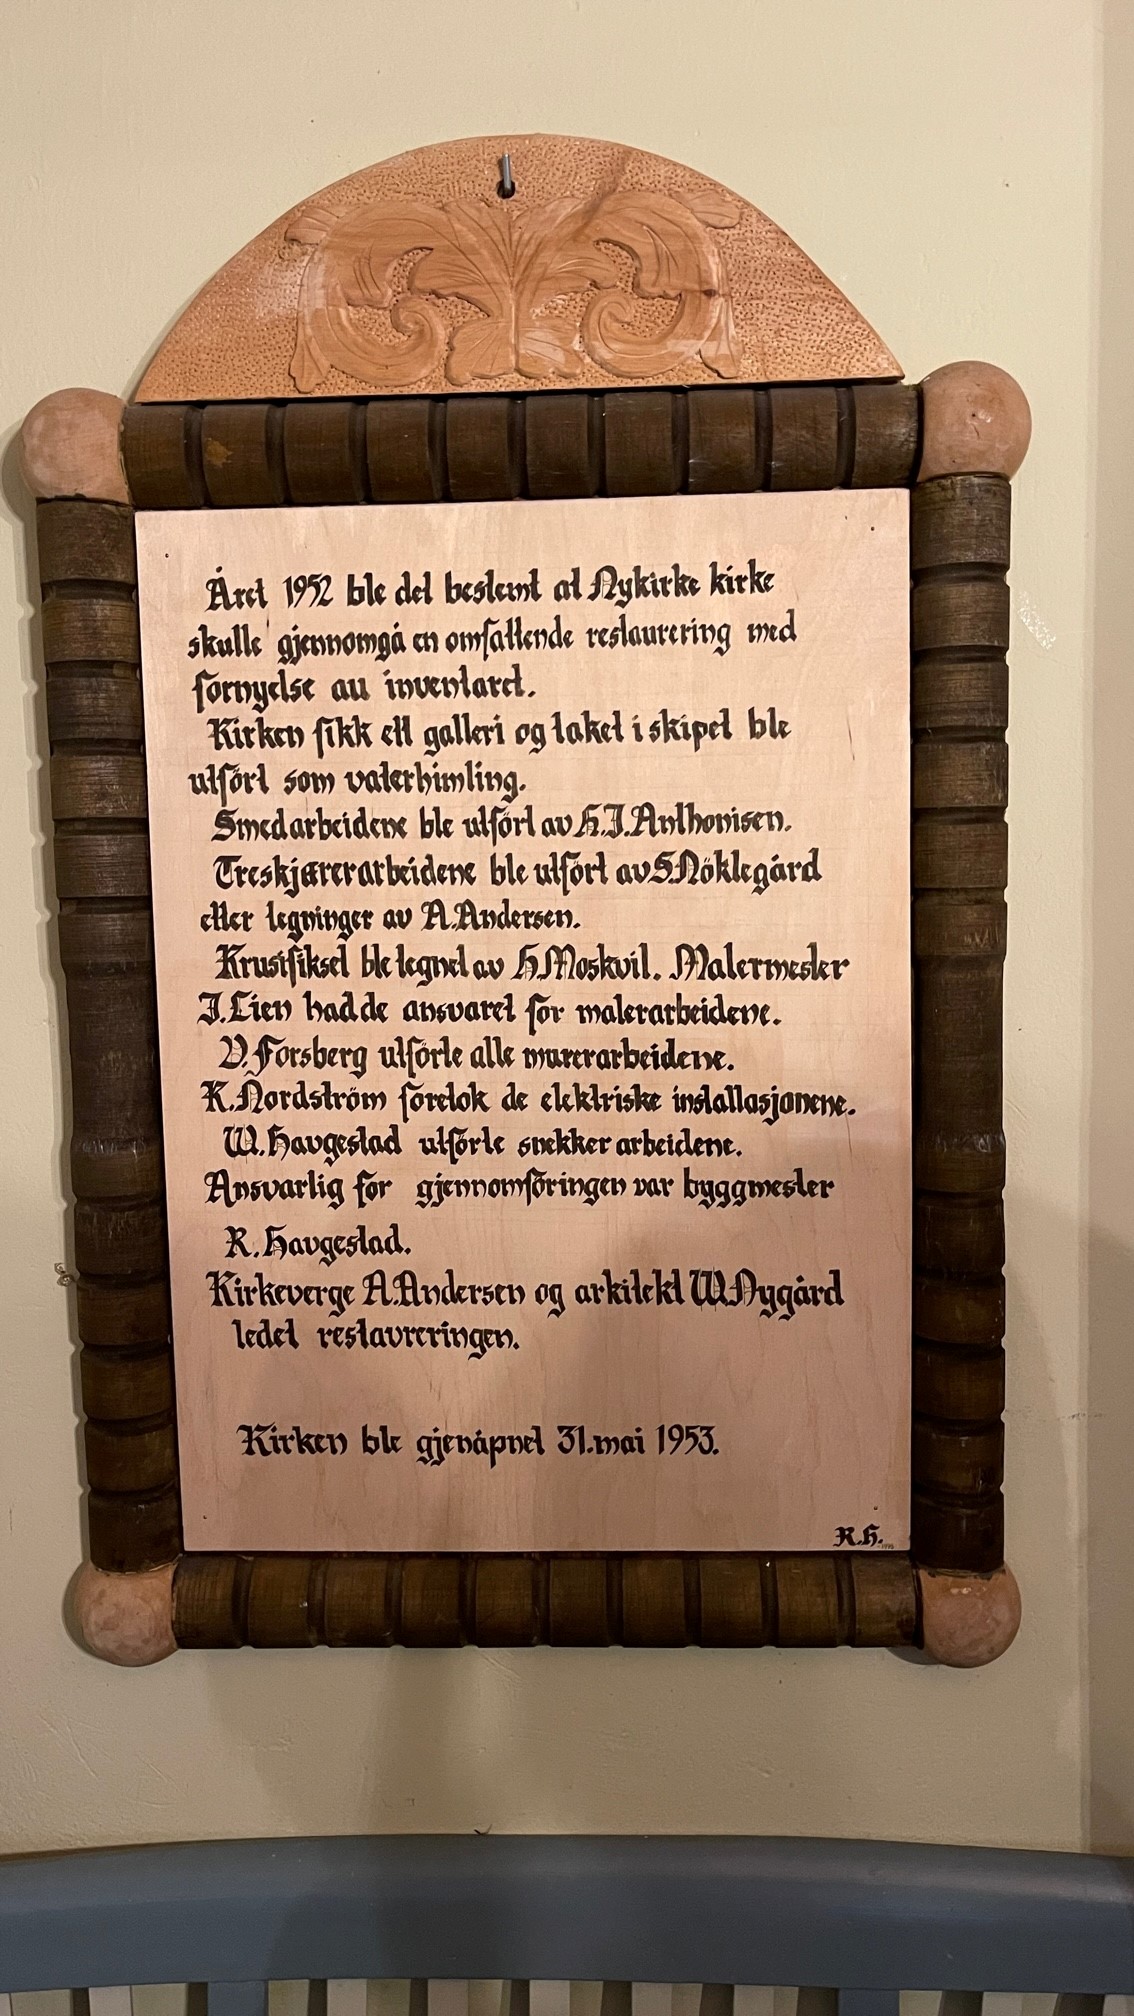 Året 1952 ble det bestemt at Nykirke kirke
skulle gjennomgå en omfattende restaurering med
fornyelse av inventaret.
Kirken fikk ett galleri og taket i skipet ble
utfört som vaterhimling.
Smedarbeidene ble utfört av H.J.Anthonisen.
Treskjærerarbeidene ble utfört av S.Nöklegård
etter tegninger av A.Andersen.
Krusifikset ble tegnet av H.Moskvil. Malermester
J.Lien hadde ansvaret for malerarbeidene.
V.Forsberg utförte alle murerarbeidene.
K.Nordström foretok de elektriske installasjonene.
W.Havgestad utförte snekkerarbeidene.
Ansvarlig for gjennomföringen var byggmester
R.Havgestad.
Kirkeverge A.Andersen og arkitekt W.Nygård
ledet restavreringen.
Kirken ble gjenåpnet 31.mai 1953.
R.H.